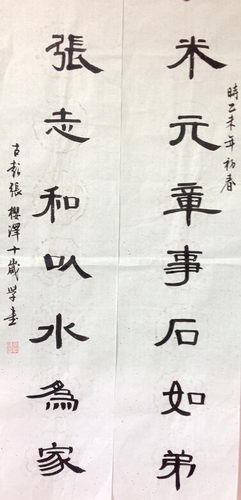 時乙未年初春
米元章事石如弟
張志和以水為家
古越張櫻澤十歲學書